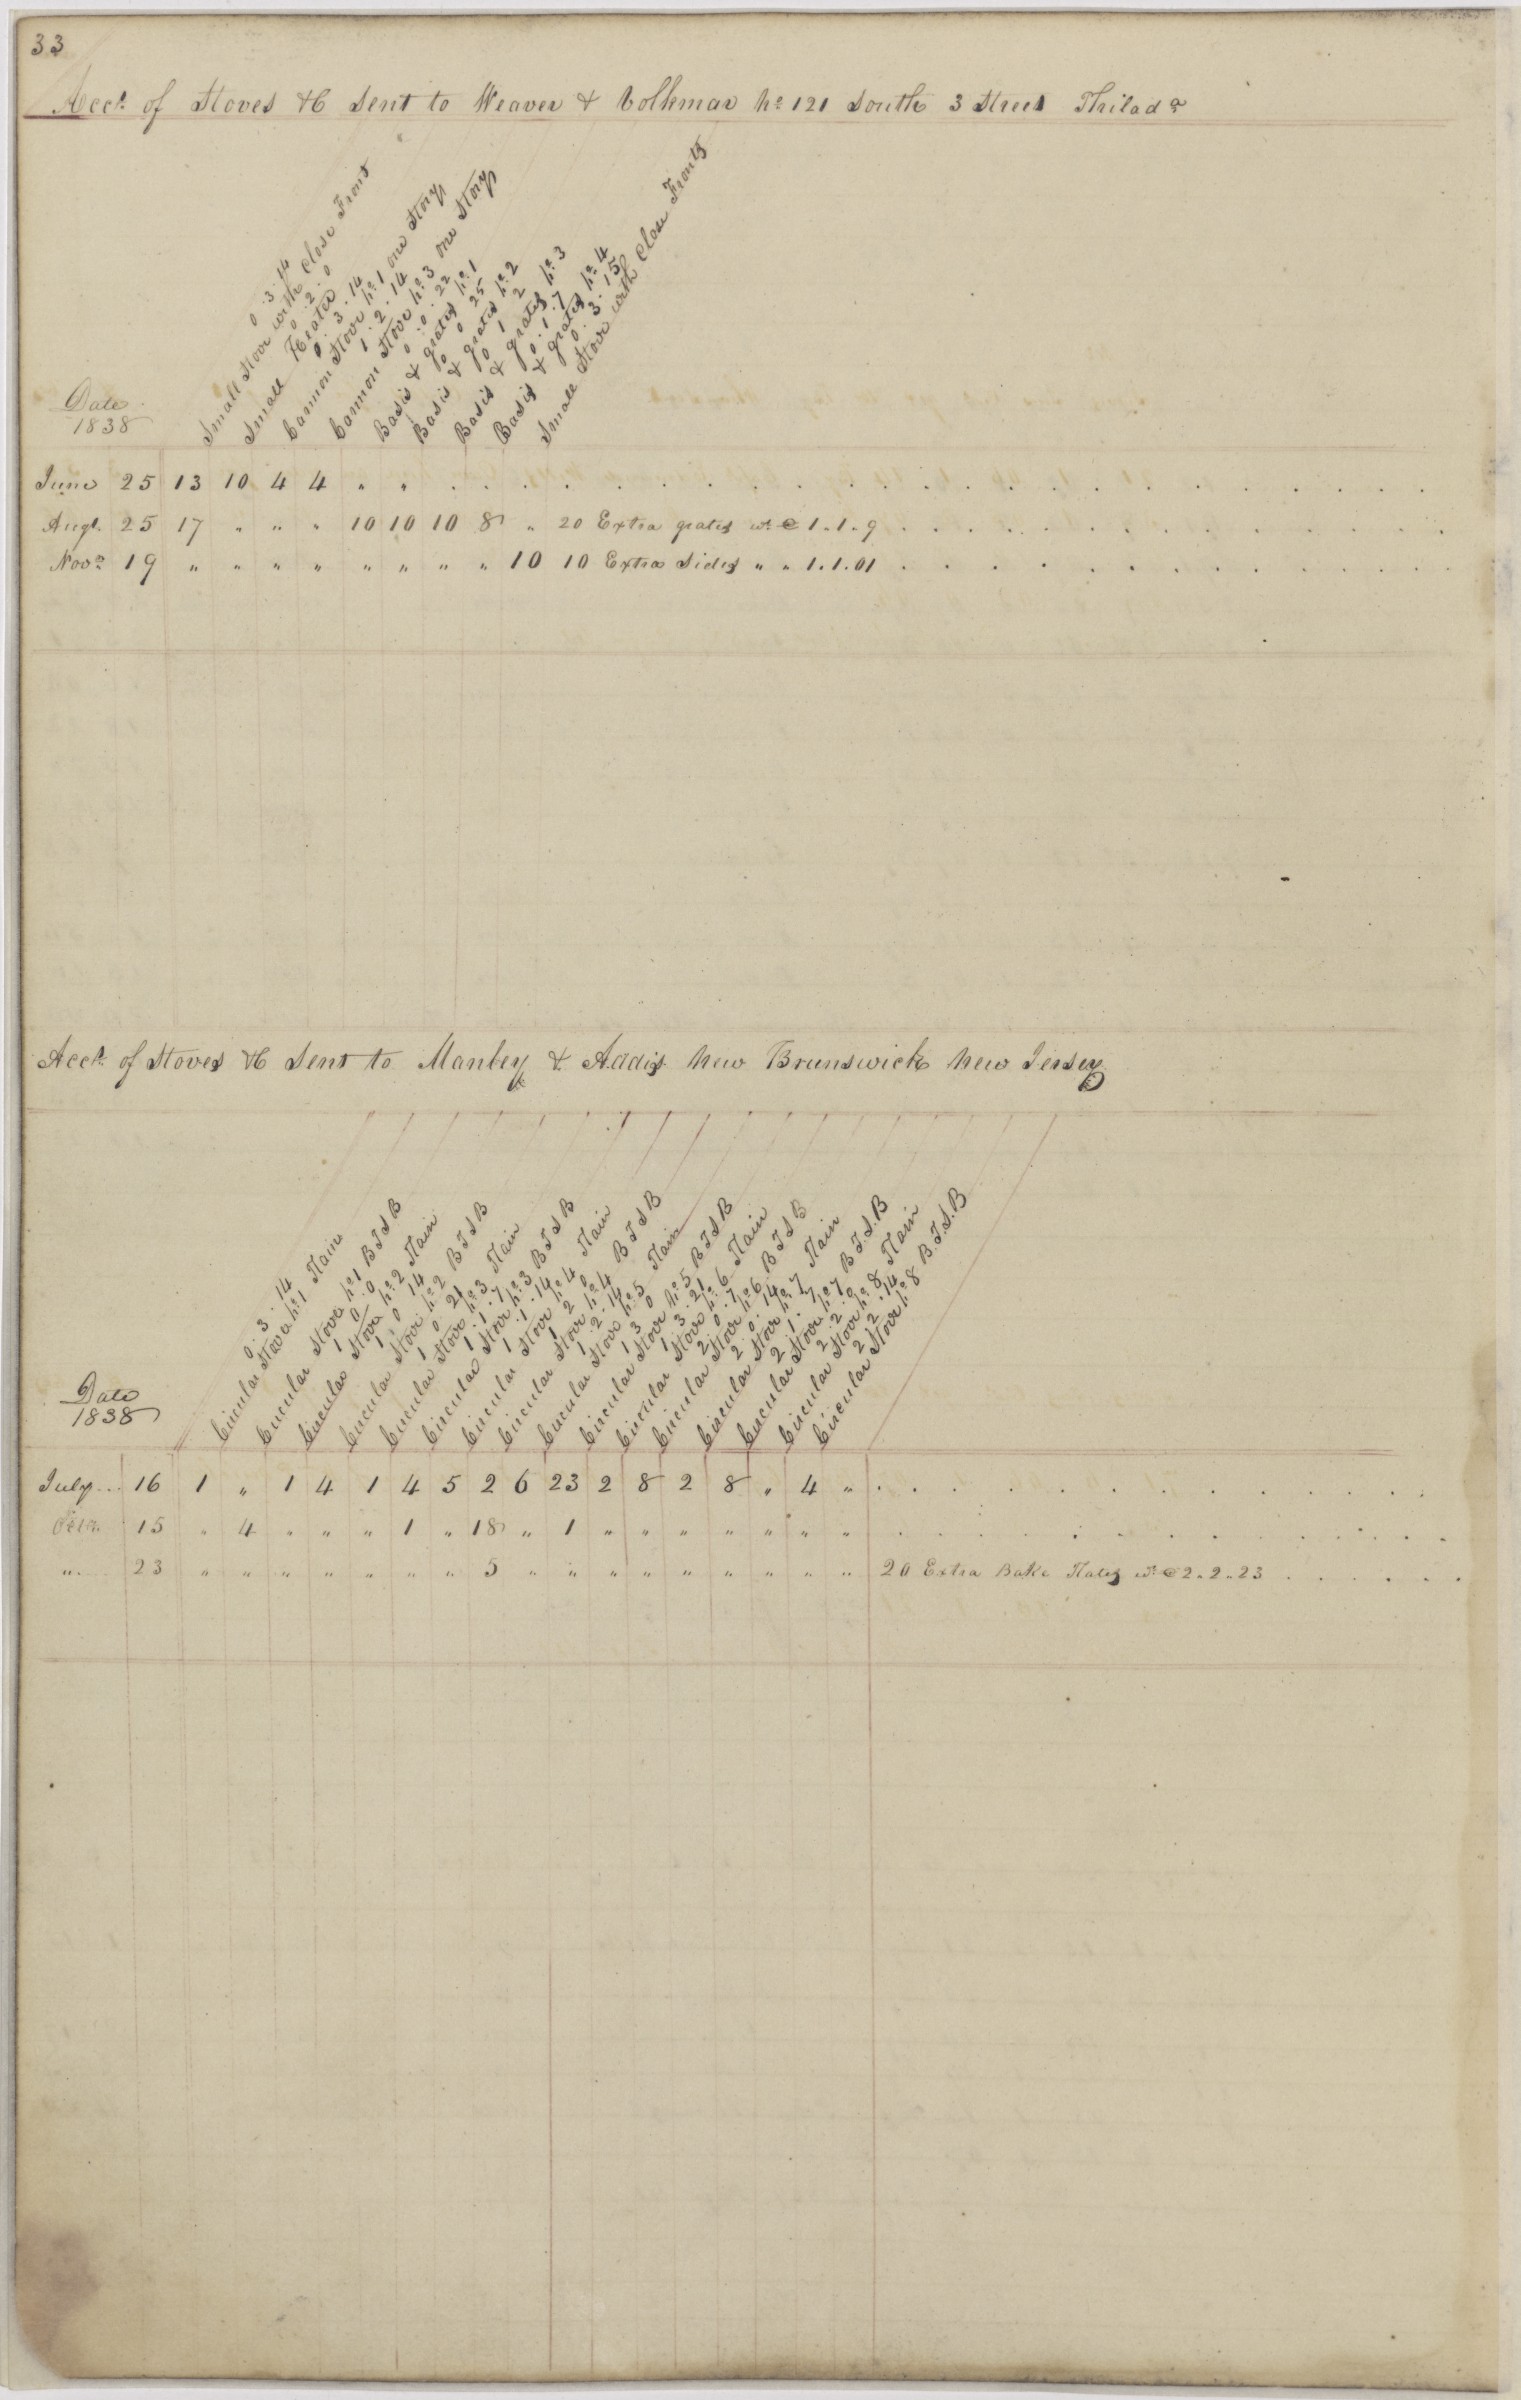 33
Acct. of Stoves &C Sent to Weaver & Volkmar No 121 South 3 Street Philada
0.3.14
Small Stove with Close Front
0.2.0
Small Heater
0.3.14
Cannon Stove No.1 one Story
1.2.14
Cannon Stove No.3 one Story
0.0.22
Basis & grates No.1
0 0 25
Basis & grates No.2
0 1 2
Basis & grates No.3
0.1.7
Basis & grates No.4
0.3.15
Small Stove with Close Fronts
Date
1838
June 25 13 10 4 4 " " . . . . . .
Augt. 25 17 " " " 10 10 10 8 " 20 Extra grates wt. @ 1.1.9 . . . . . .
Novr. 19 " " " " " " " " 10 10 Extra Sides " " 1.1.01 . . . . . .
Acct. of Stoves &C Sent to Manley & Addis New Brunswick New Jersey
0.3.14
Circular Stove No.1 Plain
Circular Stove No.1 B T S B
1 0.0
Circular Stove No.2 Plain
1 0 14
Circular Stove No.2 B T S B
1 0 21
Circular Stove No.3 Plain
1.1.7
Circular Stove No.3 B T S B
1.1.14
Circular Stove No.4 Plain
1 2 0
Circular Stove No.4 B T S B
1.2.14
Circular Stove No.5 Plain
1 3 0
Circular Stove No.5 B T S B
1 3.21
Circular Stove No.6 Plain
2 0.7
Circular Stove No.6 B T S B
2 0.14
Circular Stove No.7 Plain
2 1.7
Circular Stove No.7 B.T.S.B
2.2.0
Circular Stove No.8 Plain
2 2.14
Circular Stove No.8 B.T.S.B
Date
1838
July... 16 1 " 1 4 1 4 5 2 6 23 2 8 2 8 " 4 " . . . . . .
Octr. 15 " 4 " " " 1 " 18 " 1 " " " " " " " . . . . . .
"... 23 " " " " " " " 5 " " " " " " " " " 20 Extra Bake Plates wt. @ 2.2.23 . . . . . .